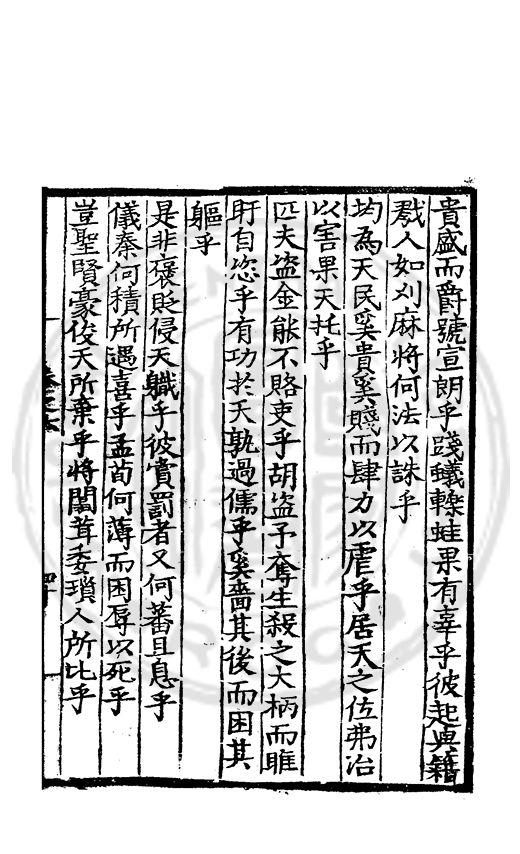 貴盛而爵號宣朗乎踐蟻轢蛙果有辜乎彼起典籍
戮人如刈麻將何法以誅乎
均為天民奚貴奚賤而肆力以虐乎居天之位弗治
以害果天托乎
匹夫盗金能不賂吏乎胡盗予奪生殺之大柄而睢
盱自恣乎有功於天孰過儒乎奚嗇其後而困其
軀乎
是非褒貶侵天職乎彼賞罰者又何蕃且息乎
儀秦何積所遇喜乎孟荀何薄而困辱以死乎
豈聖賢豪俊天所棄乎將闒茸委瑣人所比乎